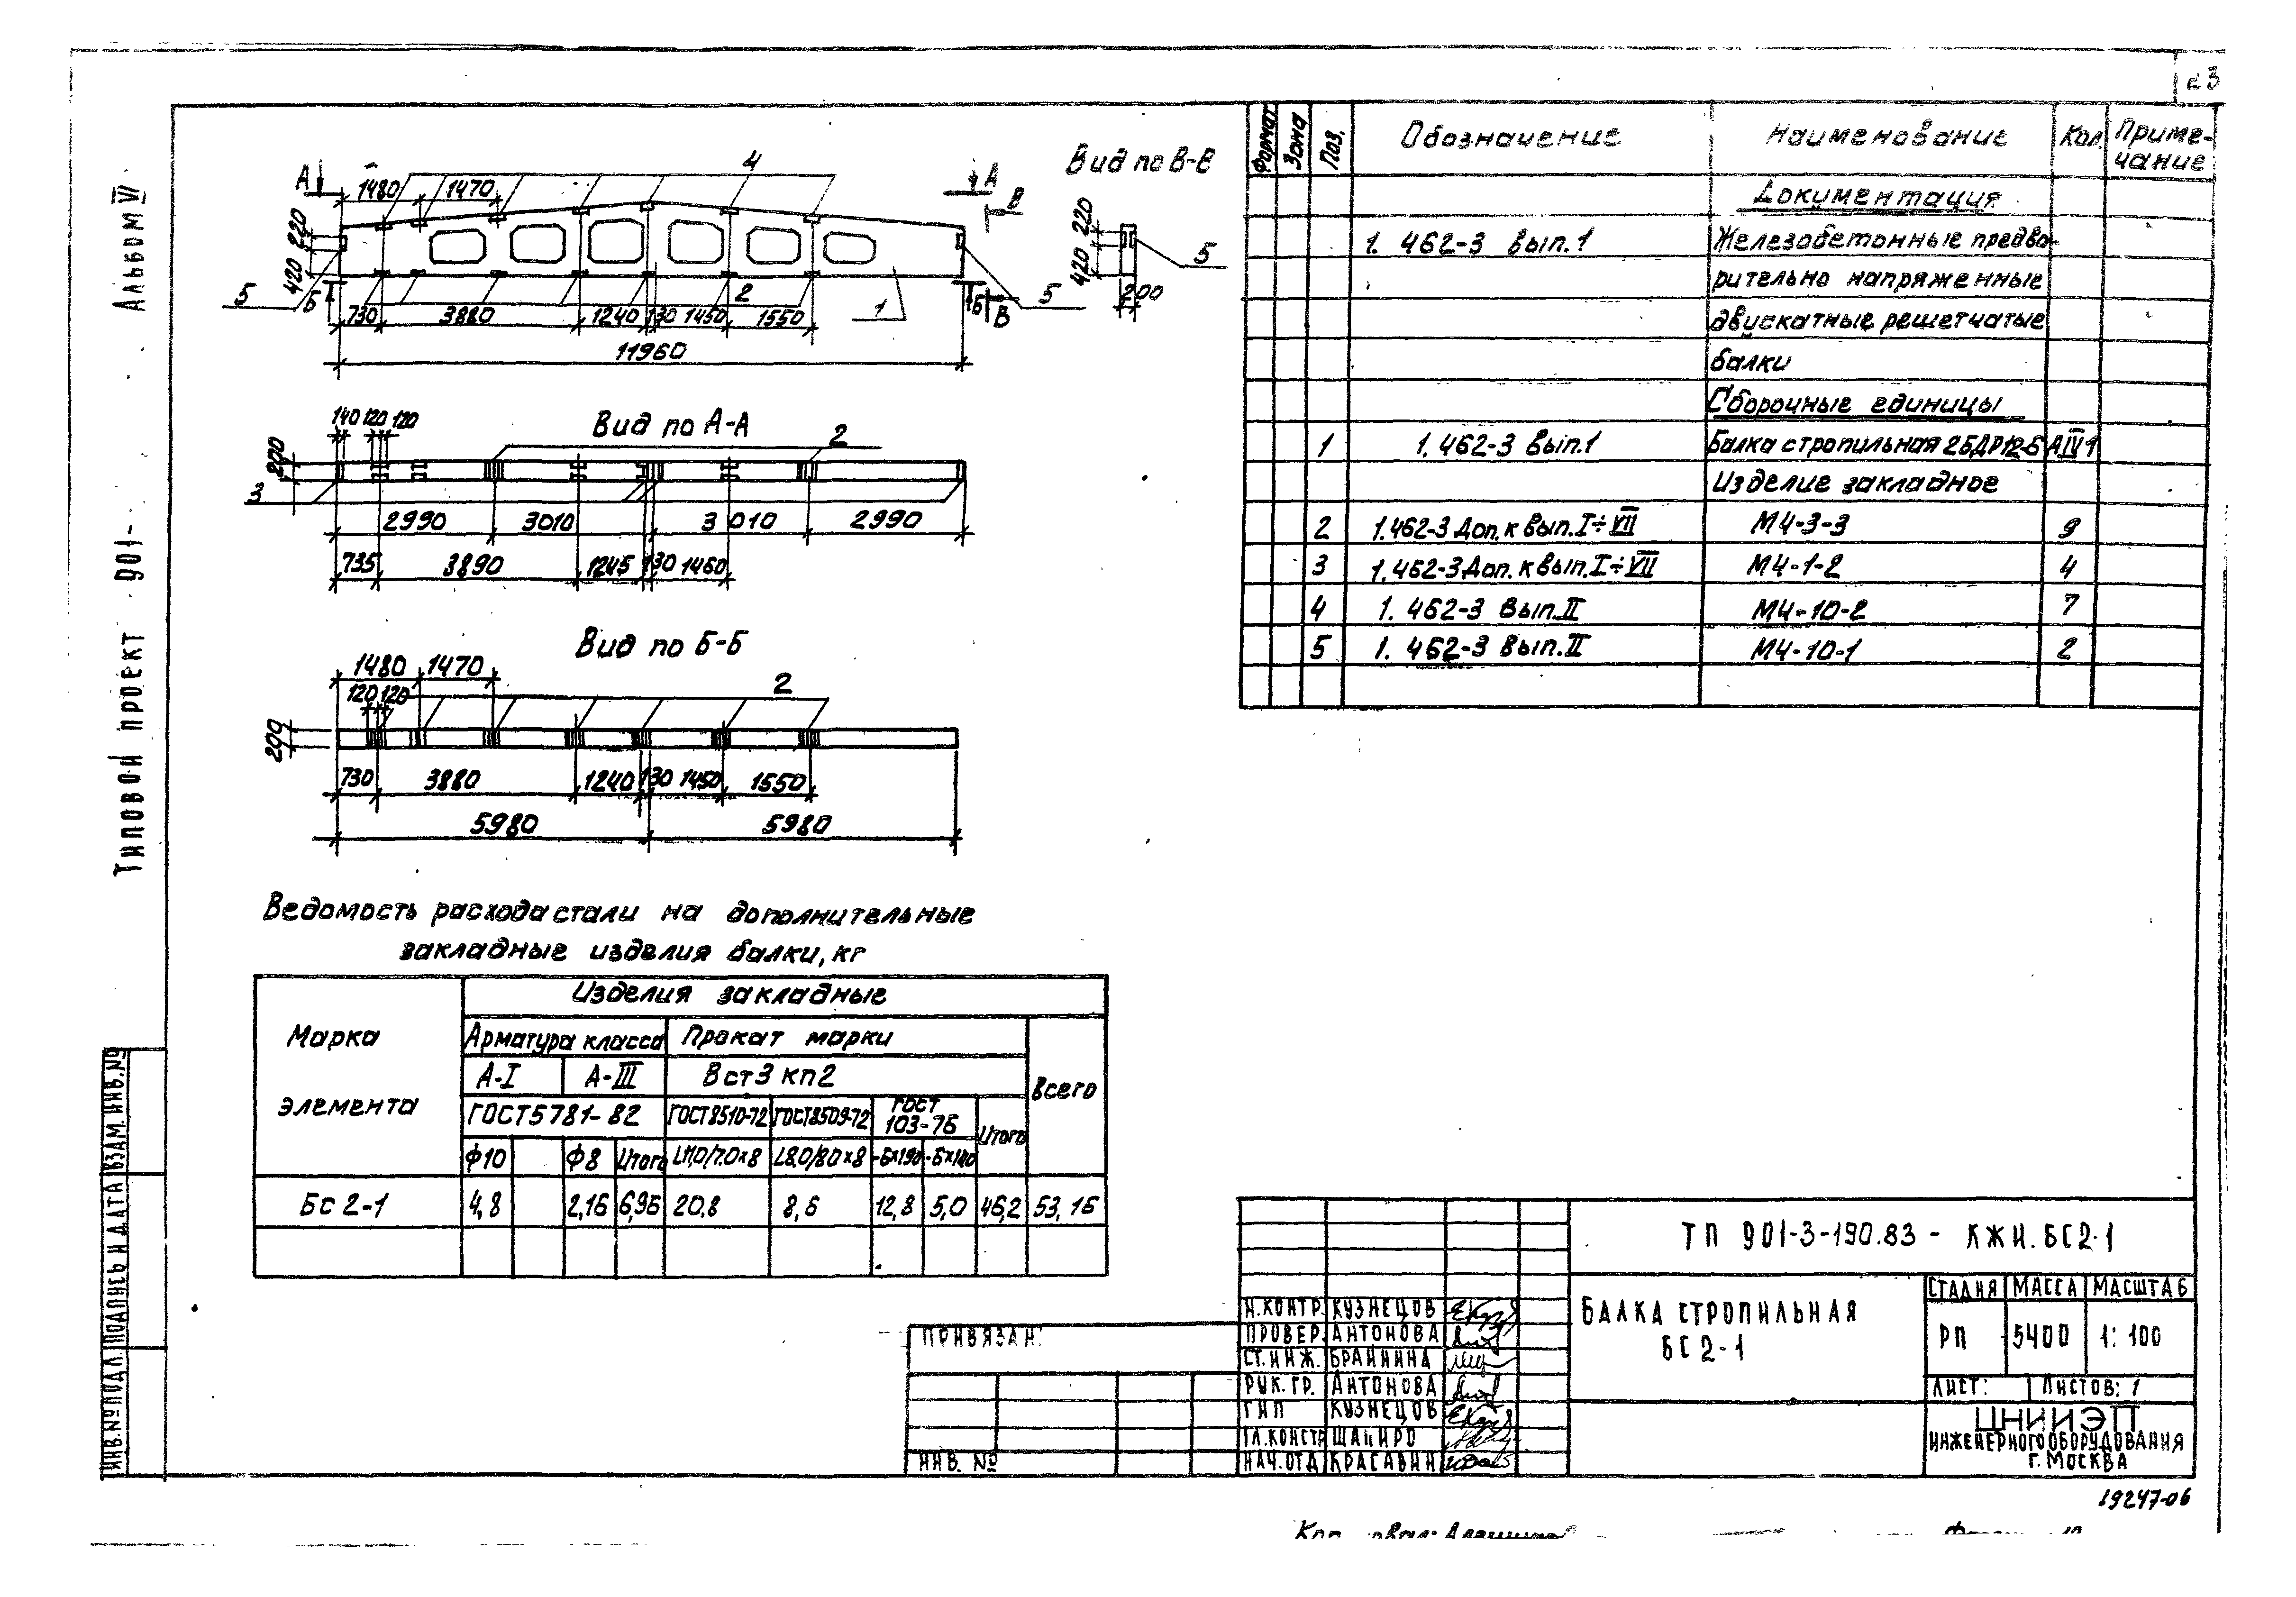 23
Альбом VI
Типовой проект 901-
ИНВ.№ ПОДЛ. ПОДПИСЬ И ДАТА ВЗАМ. ИНВ.№
А
1480
1470
4
А
В
220
420
5
Б
2
1
5
Б
В
730
3880
1240
130
1450
1550
11960
Вид по В-В
220
420
5
200
Вид по А-А
140 120 120
2
200
3
2990
3010
3010
2990
735
3890
1245
130
1460
Вид по Б-Б
1480
1470
120 120
2
200
730
3880
1240
130
1450
1550
5980
5980
Формат Зона Поз. Обозначение Наименование Кол. Приме-
чание
Документация
1. 462-3 вып.1 Железобетонные предва-
рительно напряженные
двускатные решетчатые
балки
Сборочные единицы
1 1. 462-3 вып.1 Балка стропильная 2БДР12-6 АIV 1
Изделие закладное
2 1.462-3 Доп. к вып. I÷VII М4-3-3 9
3 1.462-3 Доп. к вып. I÷VII М4-1-2 4
4 1. 462-3 вып. II М4-10-2 7
5 1. 462-3 вып. II М4-10-1 2
Ведомость расхода стали на дополнительные
закладные изделия балки, кг
Марка
элемента
Изделия закладные
Арматура класса Прокат марки
всего
А-I А-III Вст3 кп2
ГОСТ5781-82 ГОСТ8510-72 ГОСТ8509-72 ГОСТ
103-76 Итого
Ф10 Ф8 Итого L110/70×8 L80/80×8 -6×190 -6×140
Бс 2-1 4,8 2,16 6,96 20,8 8,6 12,8 5,0 46,2 53,16
ПРИВЯЗАН:
ИНВ. №
ТП 901-3-190.83 - КЖИ.БС2-1
Н.КОНТР. КУЗНЕЦОВ
ПРОВЕР. АНТОНОВА
СТ.ИНЖ. БРАИНИНА
РУК.ГР. АНТОНОВА
ГИП КУЗНЕЦОВ
ГЛ.КОНСТР ШАПИРО
НАЧ.ОТД КРАСАВИН
БАЛКА СТРОПИЛЬНАЯ
БС 2-1
СТАДИЯ МАССА МАСШТАБ
РП 5400 1:100
ЛИСТ: ЛИСТОВ: 1
ЦНИИЭП
ИНЖЕНЕРНОГО ОБОРУДОВАНИЯ
Г. МОСКВА
19247-06